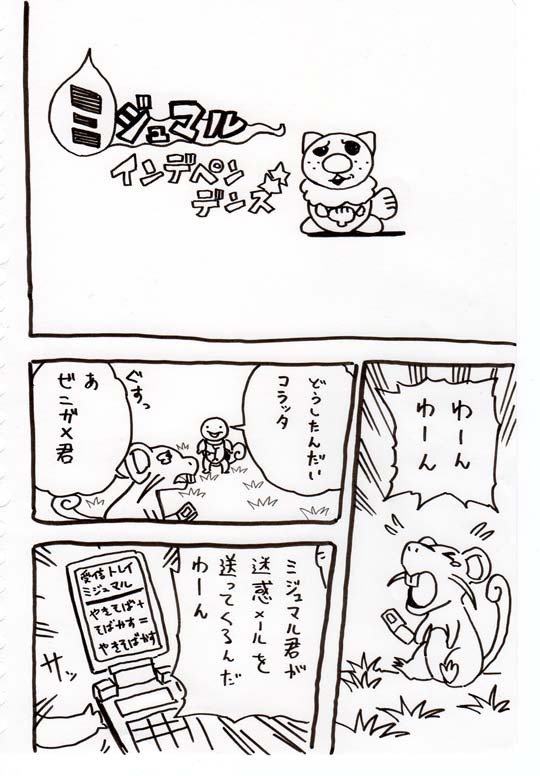 ミジュマル
インデペン
デンス
わーん
わーん
どうしたんだい
コラッタ
ぐすっ
あ
ゼニガメ君
ミジュマル君が
迷惑メールを
送ってくるんだ
わーん
受信トレイ
ミジュマル
やきそば+
そばかす=
やきそばかす
サッ